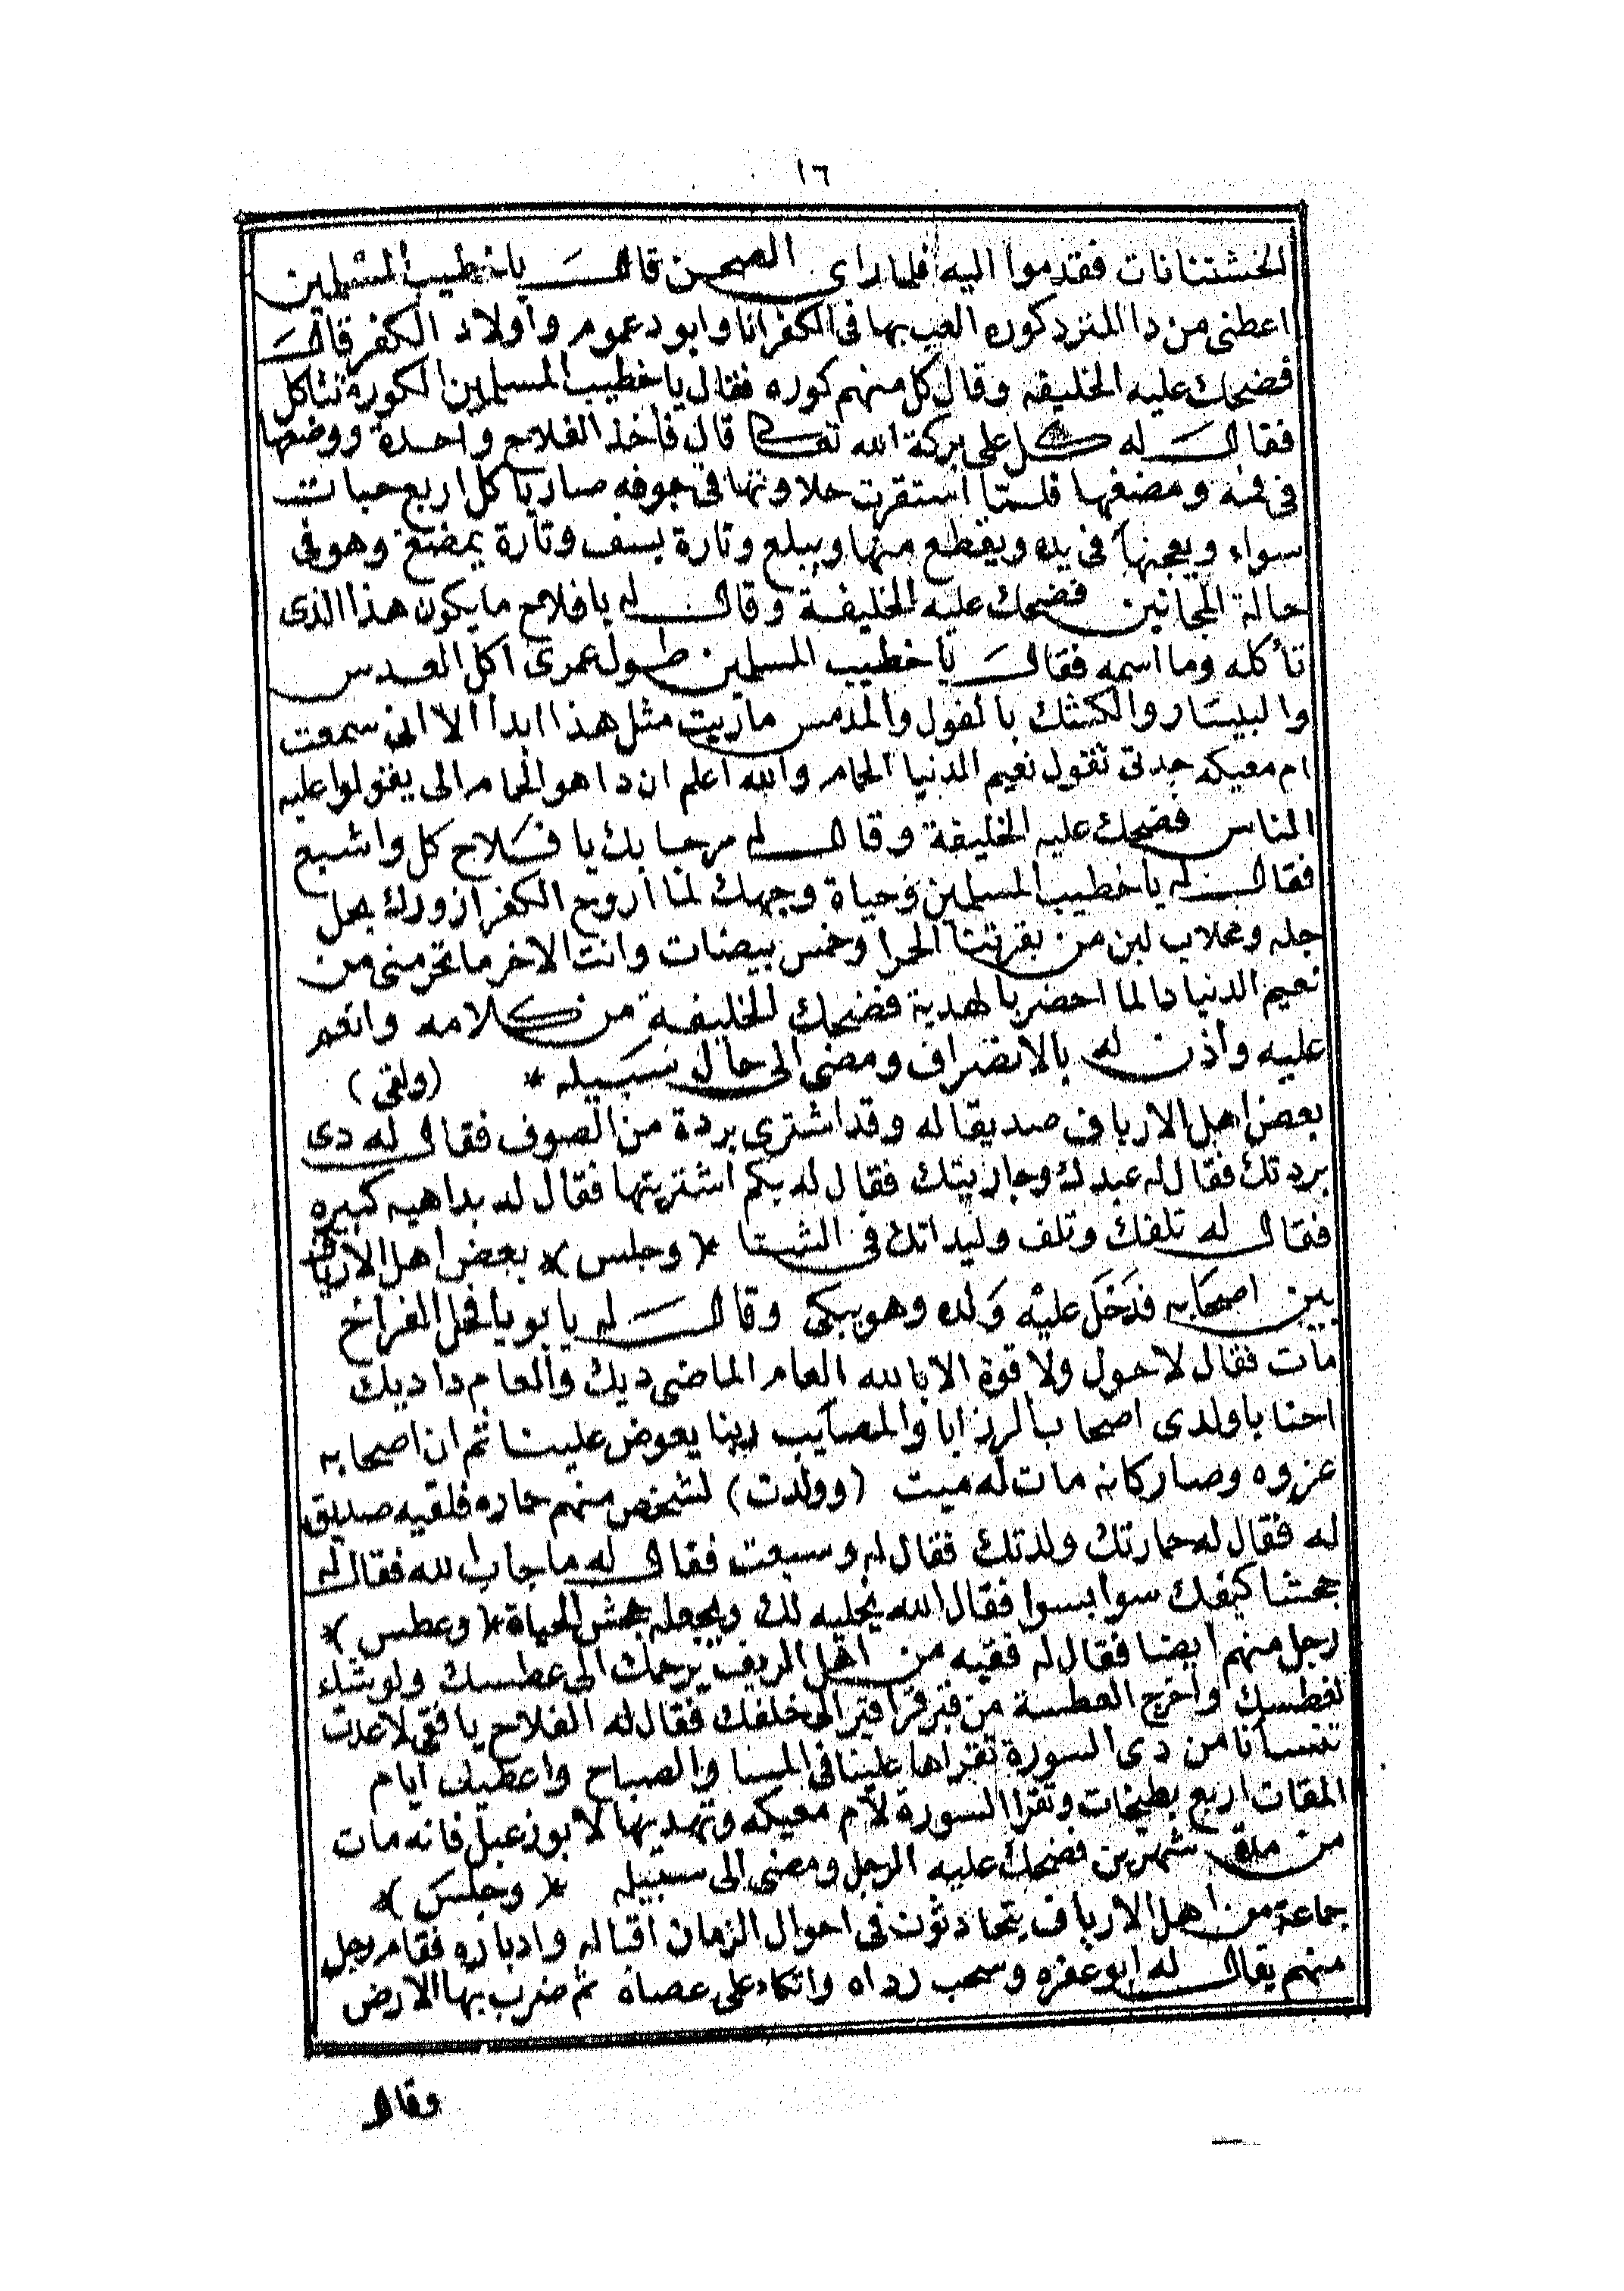 ١٦
الخشتنانات فقدموا اليه فلما راى الصحن قال يا خطيب المسلمين
اعطنى من دا المنزد كوره العب بها فى الكفر انا وابو دعموم واولاد الكفر قال
فضحك عليه الخليفه وقال كل منهم كوره فقال يا خطيب المسلمين الكورة تتاكل
فقال له كل على بركة الله تعالى قال فاخذ الفلاح واحدة ووضعها
فى فمه ومضغها فلمّا استقرت حلاوتها فى جوفه صار ياكل اربع حبات
سواء ويعجنها فى يده ويقطع منها ويبلع وتارة يسف وتارة يمضغ وهو فى
حالة المجانين فضحك عليه الخليفة وقال له يا فلاح ما يكون هذا الذى
تأكله وما اسمه فقال يا خطيب المسلمين طول عمرى اكل العدس
والبيسار والكشك بالفول والمدمس ماريت مثل هذا ابدا الا انى سمعت
ام معيكه جدتى تقول نعيم الدنيا الحمام والله اعلم ان دا هو الحمام الى يقولوا عليه
الناس فضحك عليه الخليفة وقال له مرحبا بك يا فلاح كل واشبع
فقال له يا خطيب المسلمين وحياة وجهك لمّا اروح الكفر ازورك بحل
جله ومحلاب لبن من بقرتنا الحمرا وخمس بيضات وانت الاخر ما تحرمنى من
نعيم الدنيا دا لما احضر بالهدية فضحك الخليفة من كلامه وانعم
عليه واذن له بالانصراف ومضى الى حال سبيله * (ولقى)
بعض اهل الارياف صديقا له وقد اشترى بردة من الصوف فقال له دى
بردتك فقال له عبدك وجاريتك فقال له بكم اشتريتها فقال له بداهيه كبيره
فقال له تلفك وتلف وليداتك فى الشتا * (وجلس)* بعض اهل الارياف
بين اصحابه فدَخَل عليْه وَلده وهو يبكى وقال له يا بويا فحل الفراخ
مات فقال لا حول ولا قوة الا بالله العام الماضى ديك والعام دا ديك
احنا يا ولدى اصحاب الرزايا والمصايب ربنا يعوض علينا ثم ان اصحابه
عزوه وصار كانه مات له ميت (وولدت) لشخص منهم حماره فلقيه صديق
له فقال له حمارتك ولدتك فقال له وسبعت فقال له ما جاب الله فقال له
جحشا كيفك سوا بسوا فقال الله يخليه لك ويجعله جحش الحياة *(وعطس)*
رجل منهم ايضا فقال له فقيه من اهل الريف يرحمك الى عطسك ولو شاء
لفطسك واخرج العطسة من قبر الى خلفك فقال له الفلاح يا فقى لا عدت
تنسانا من دى السورة تقراها علينا فى المسا والصباح واعطيك ايام
المقات اربع بطيخات وتقرا السورة لام معيكه وتهديها لابو زعبل فانه مات
من مدة شهرين فضحك عليه الرجل ومضى الى سبيله *(وجلس)*
جماعة من اهل الارياف يتحادثون فى احوال الزمان اقباله وادباره فقام رجل
منهم يقال له ابو عفره وسحب رداه واتكاء على عصاه ثم ضرب بها الارض
وقال